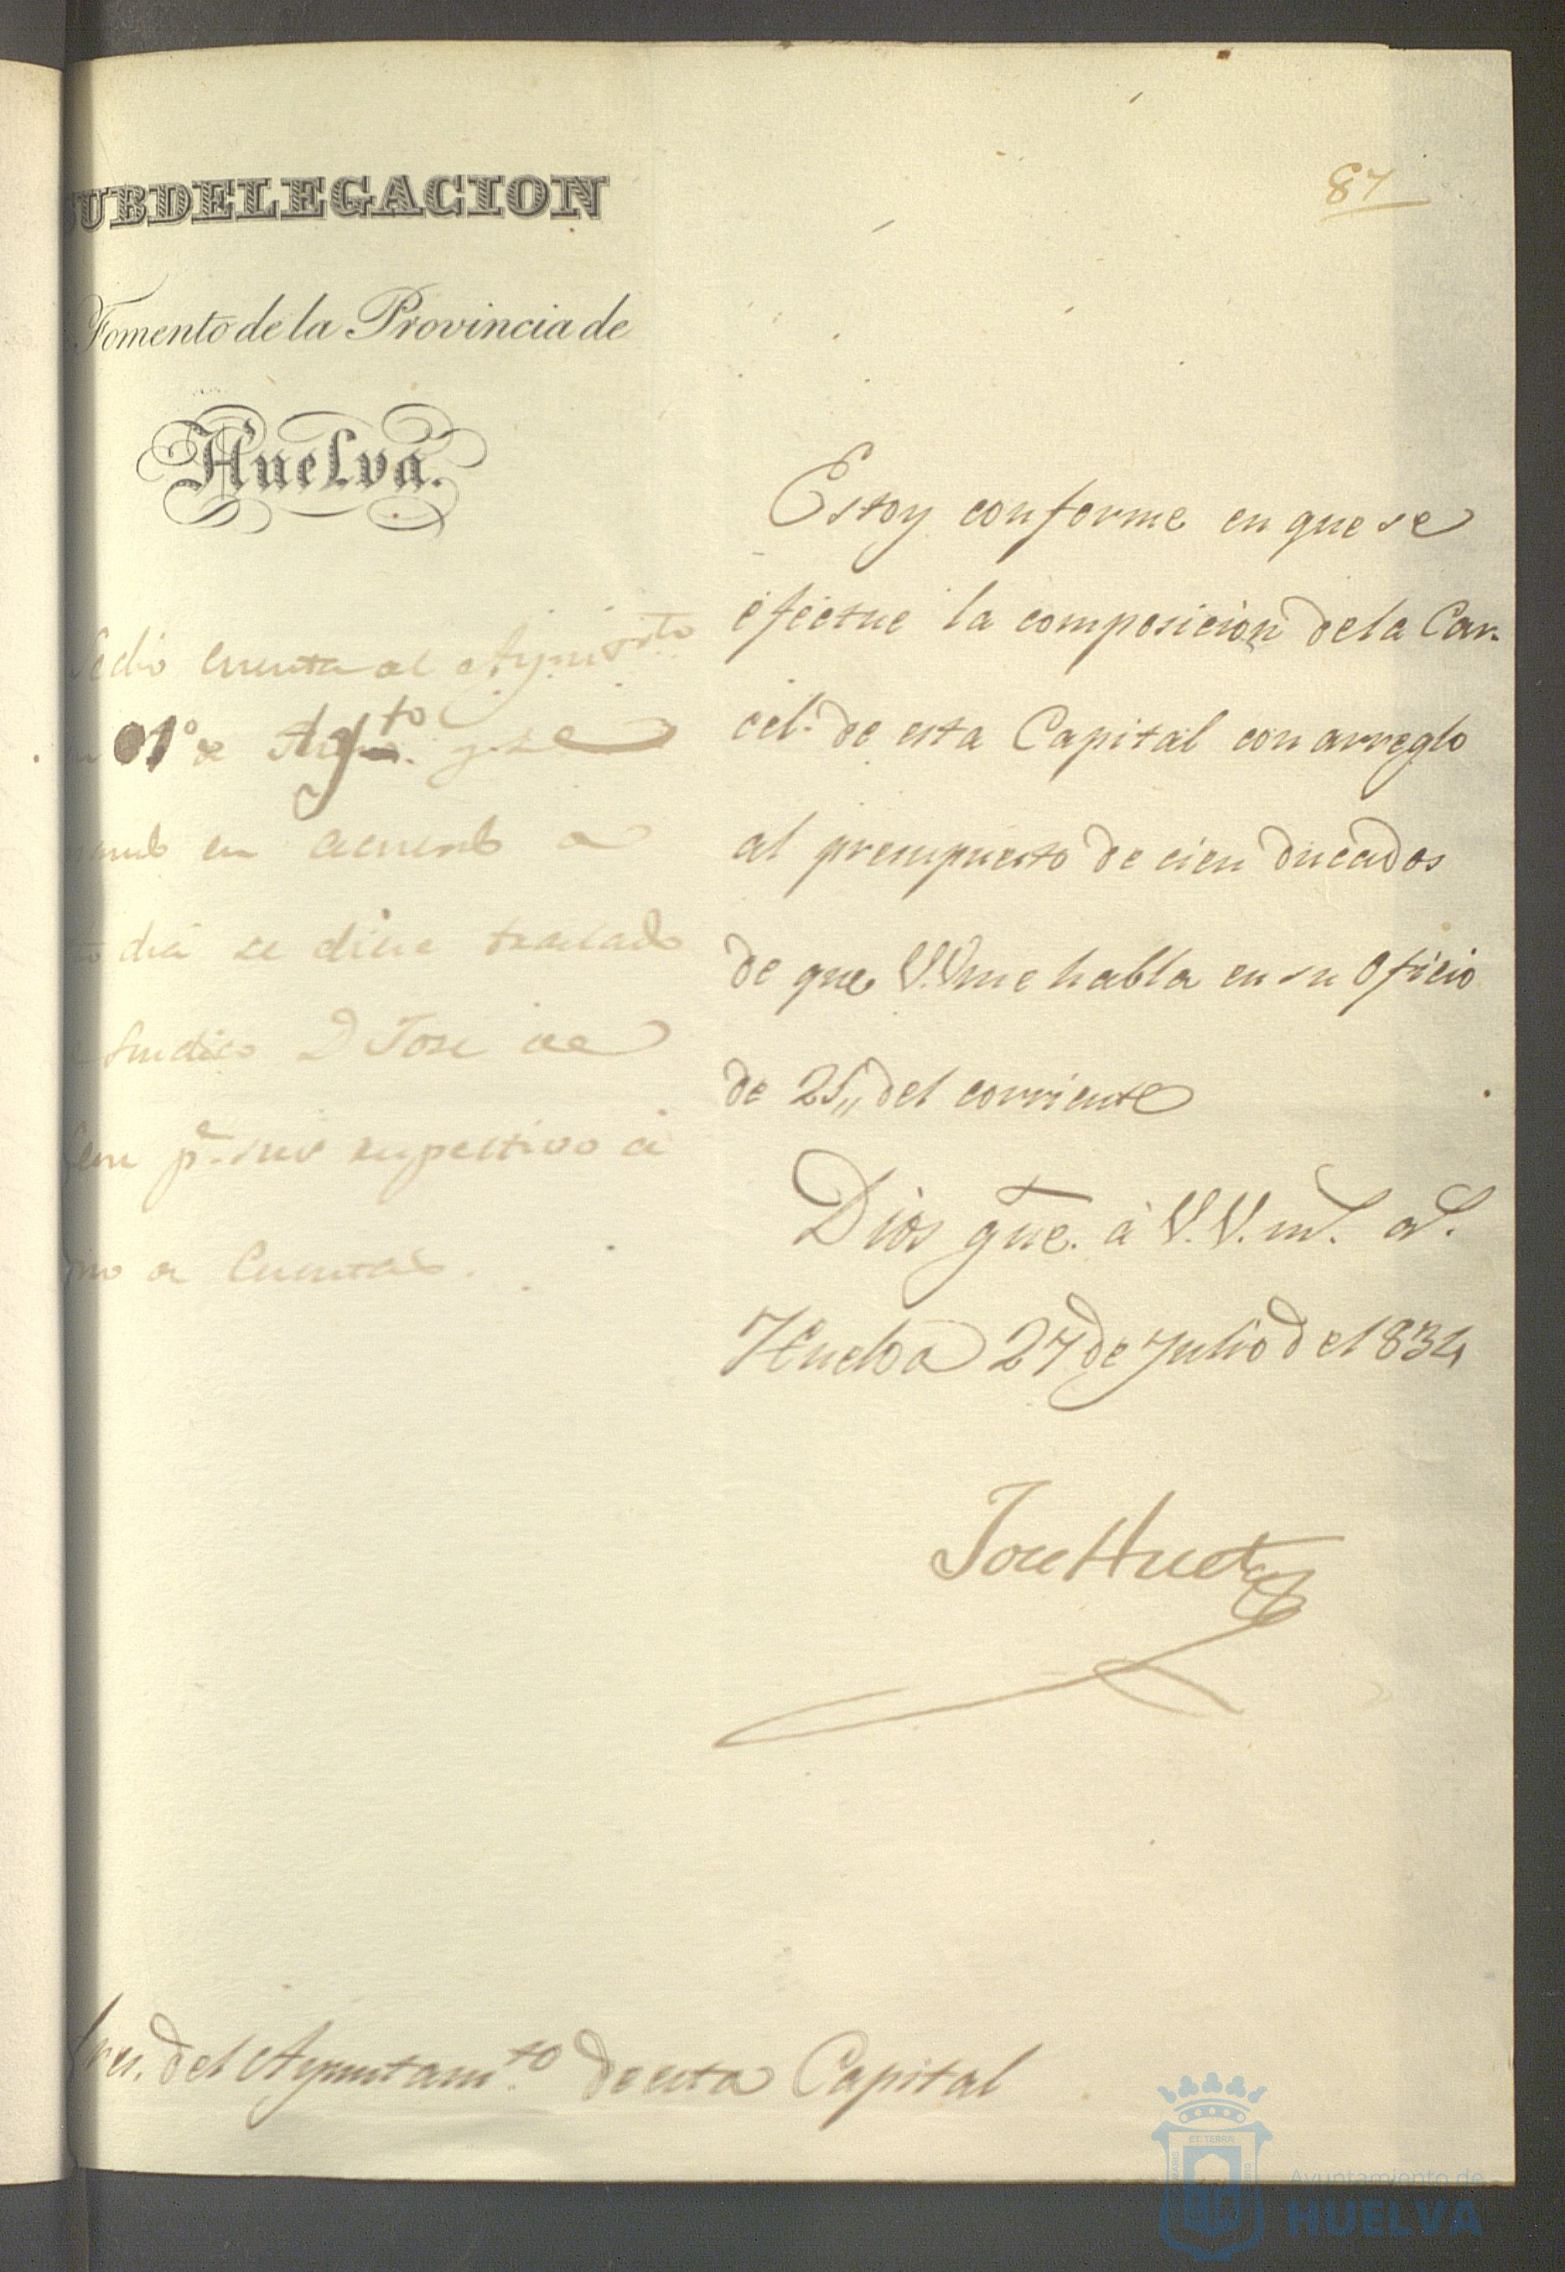 87
SUBDELEGACION
Fomento de la Provincia de
Huelva.
Se dio cuenta al Ayunto
01º de Agto. y se
en acuerdo a
dia se diese traslado
Sindico D Jose de
respectivo a
de Cuentas.
Estoy conforme en que se
efectue la composicion de la Car-
cel. de esta Capital con arreglo
al presupuesto de cien ducados
de que V.V. me habla en su Oficio
de 25,, del corriente
Dios gue. à V.V. ms. as.
Huelva 27 de Julio de 1834
Jose Huet
Sres. del Ayuntamto. de esta Capital
Ayuntamiento de
HUELVA